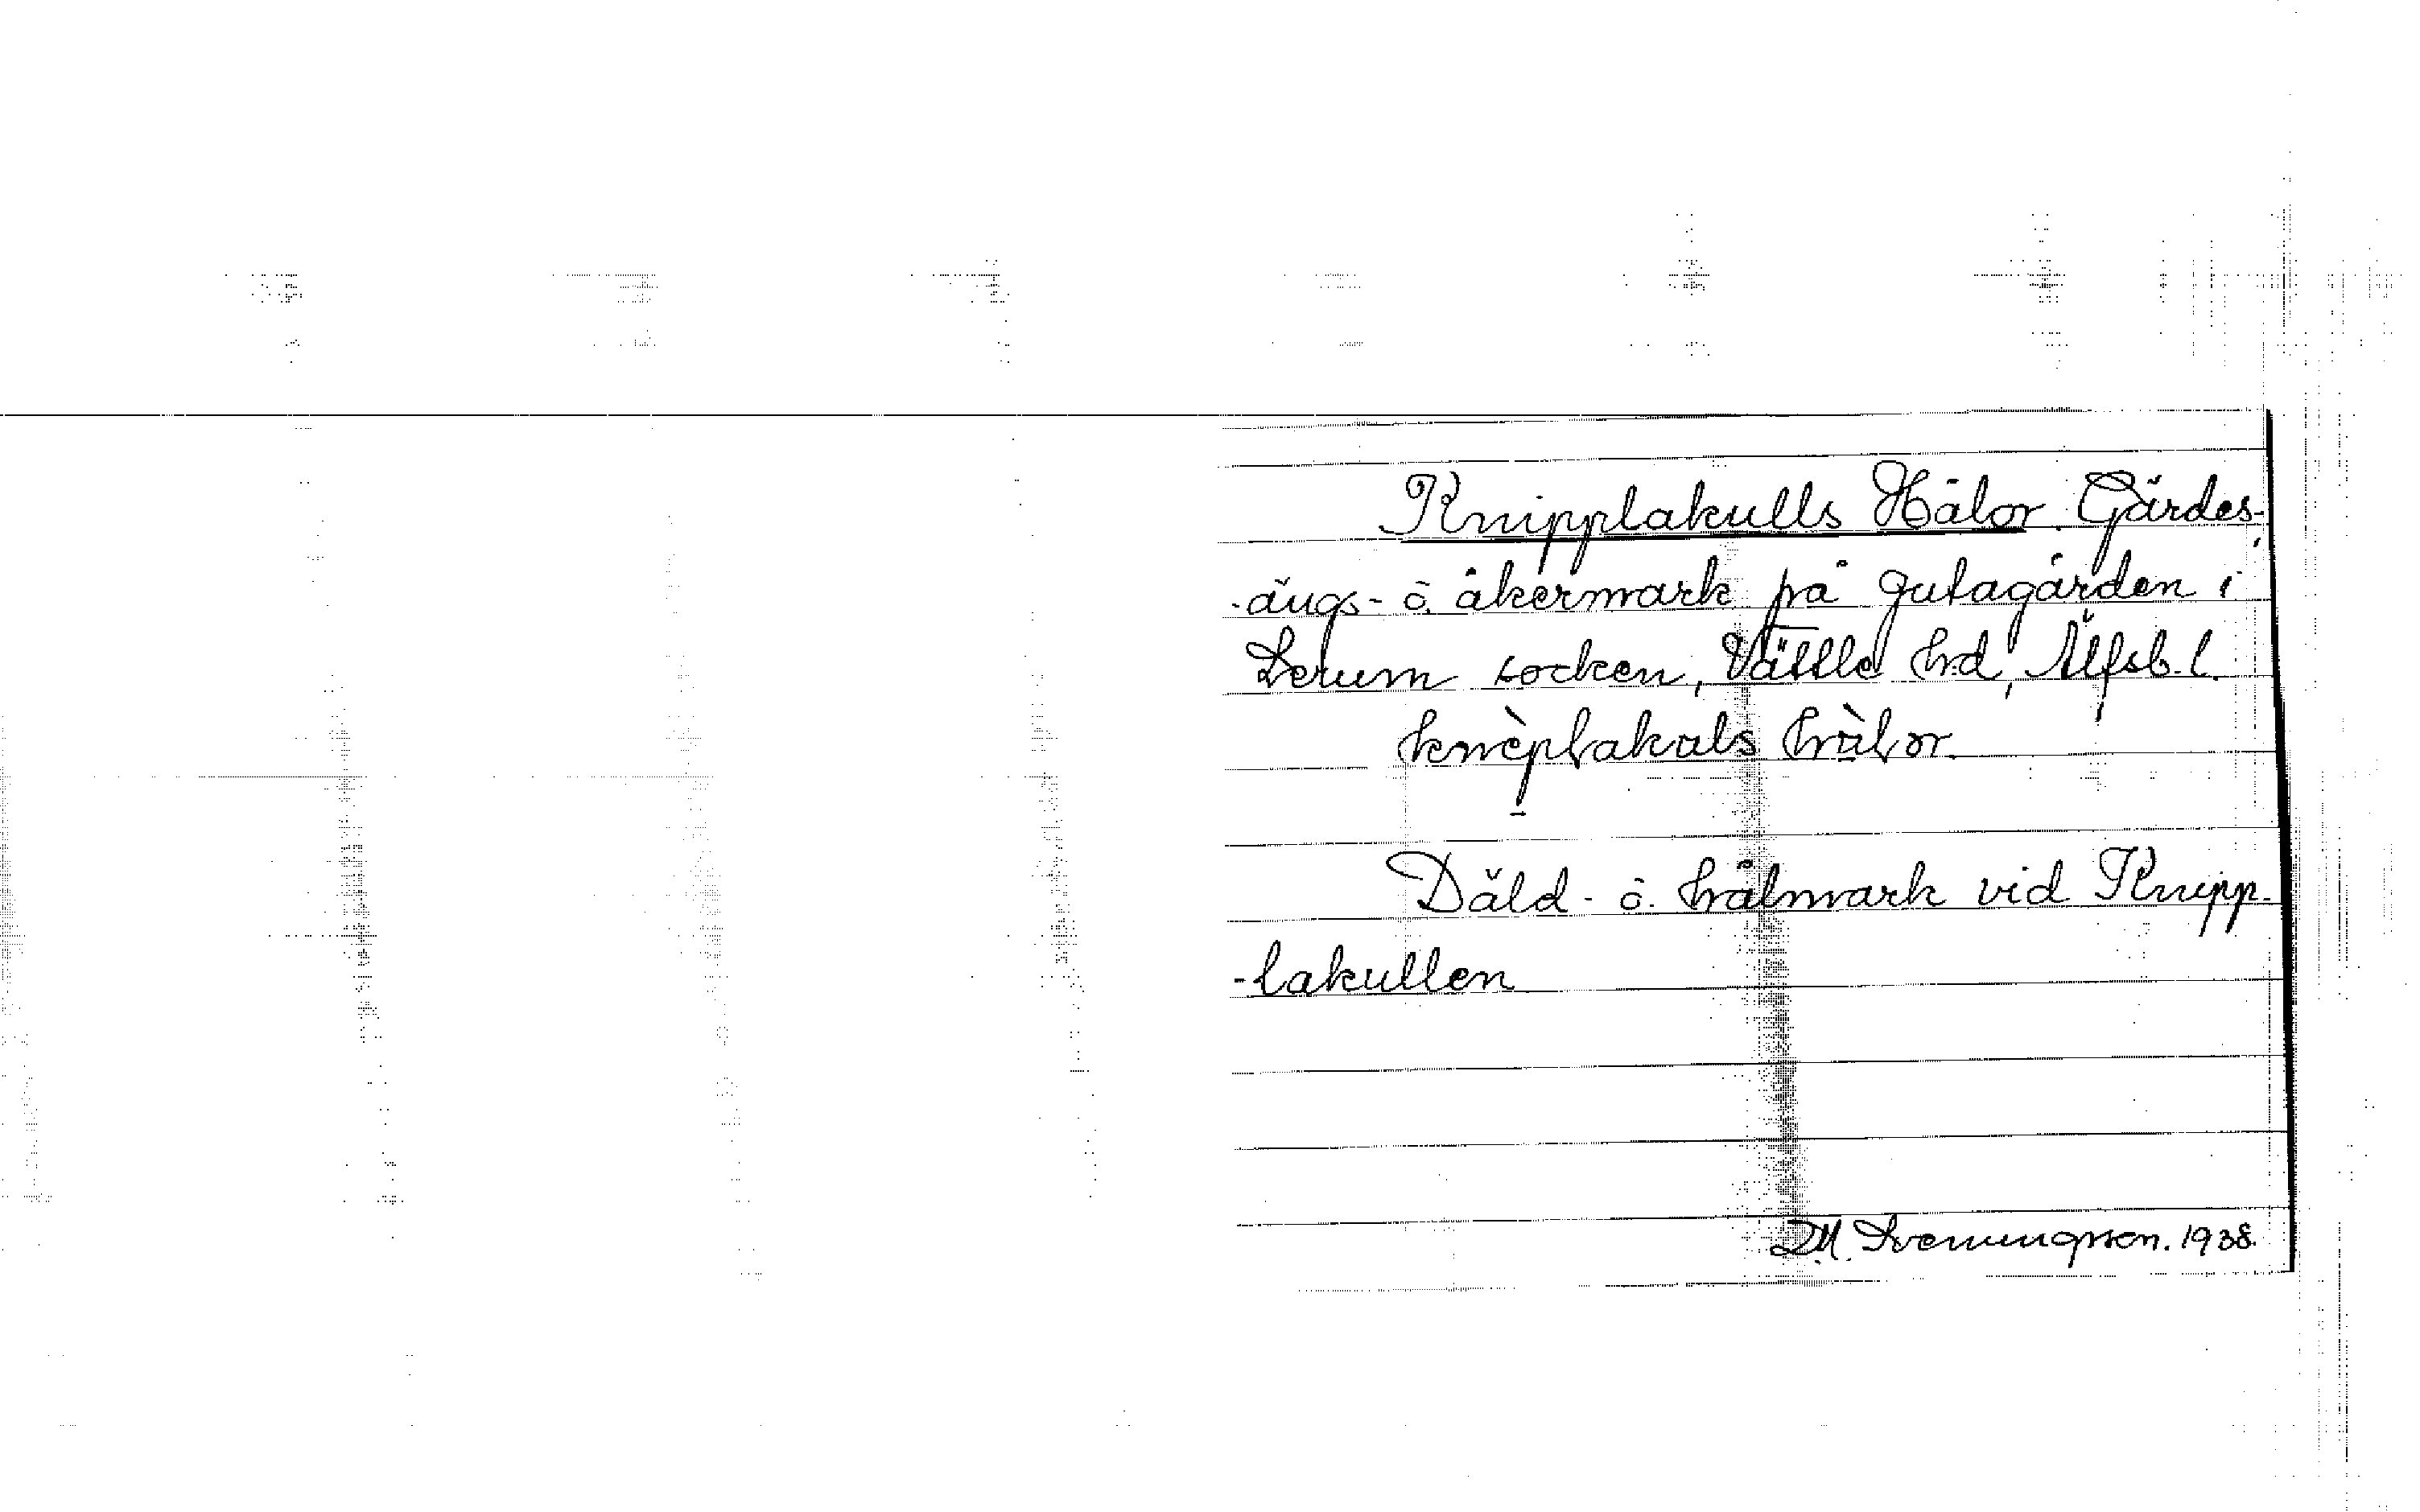 Knipplakulls Hålor. Gärdes-,
-ängs- o. åkermark på Gutagården i
Lerum socken, Vättle hd, Älfsb. l.
knèplakuls hålor.
Däld- o. hålmark vid Knipp-
-lakullen
D.M. Svenningsson. 1938.